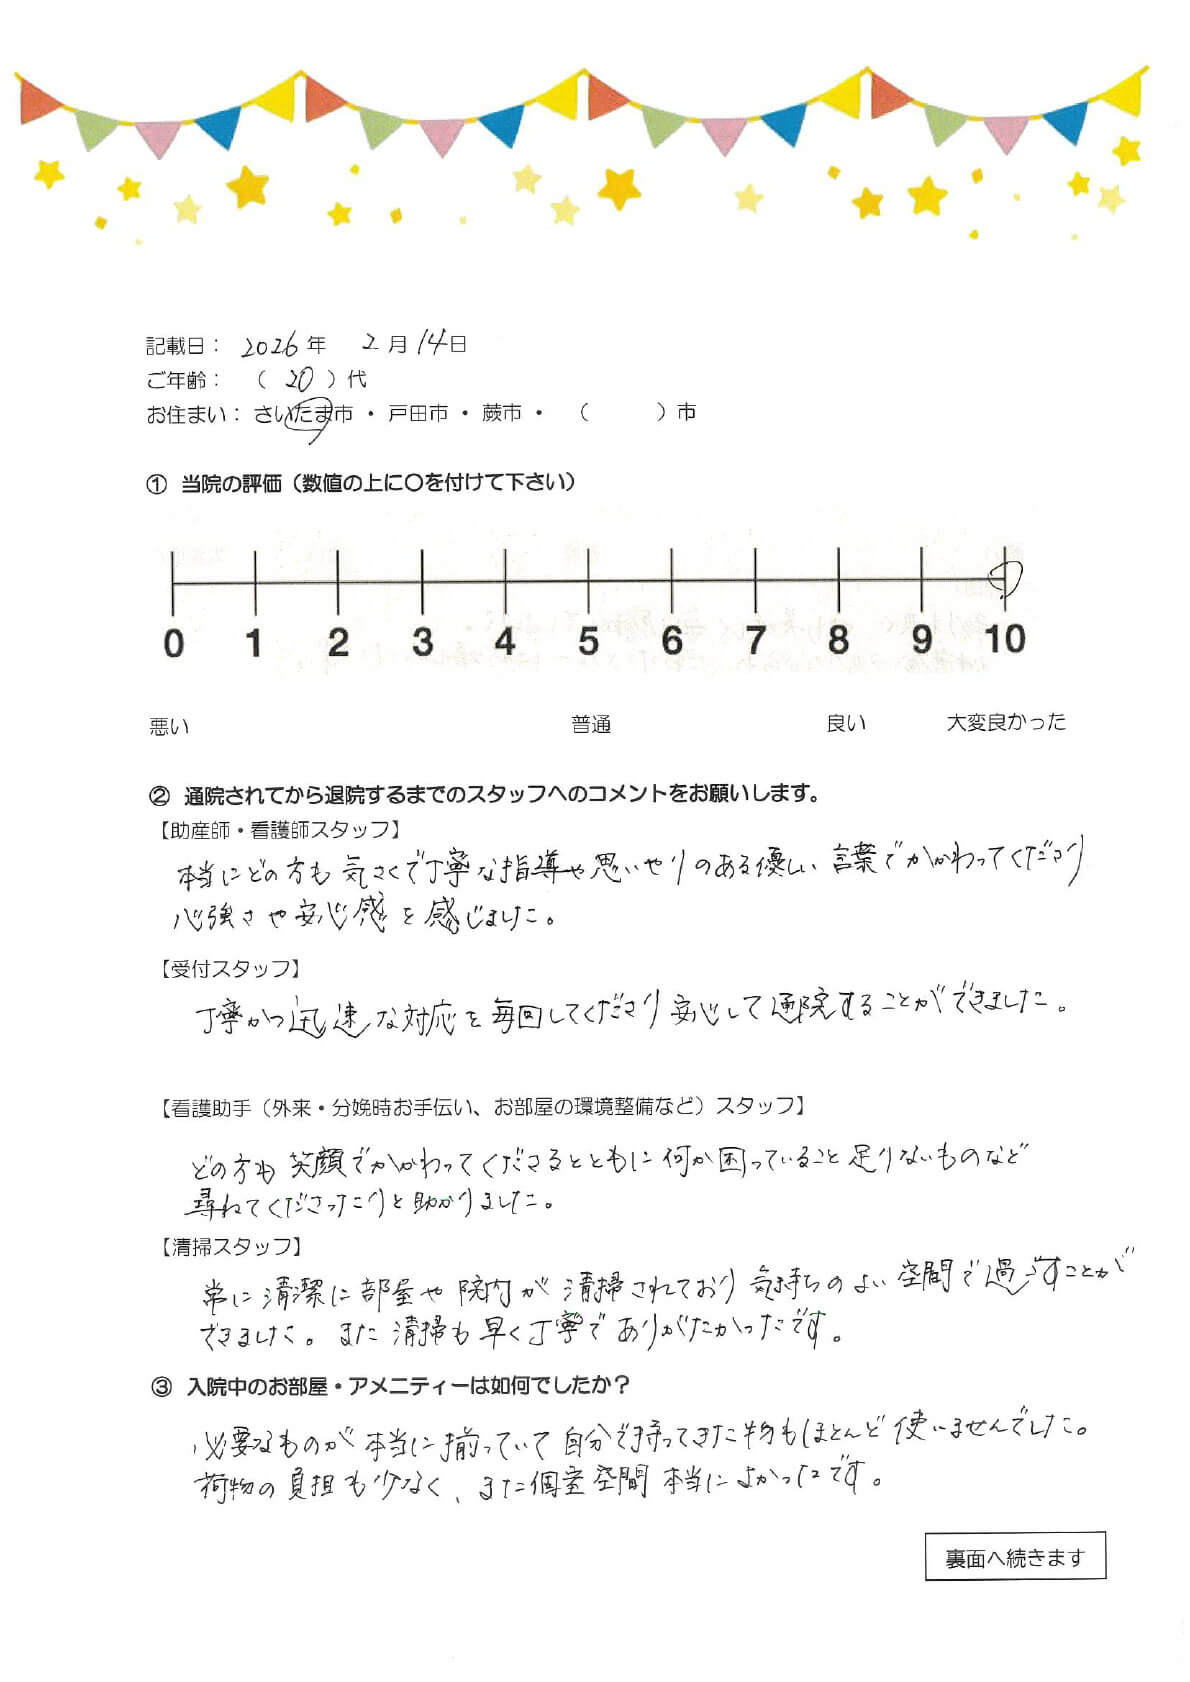 記載日： 2026年 2月14日
ご年齢： （ 20 ）代
お住まい： さいたま市 ・ 戸田市 ・ 蕨市 ・ （ ）市
① 当院の評価（数値の上に〇を付けて下さい）
0 1 2 3 4 5 6 7 8 9 10
悪い 普通 良い 大変良かった
② 通院されてから退院するまでのスタッフへのコメントをお願いします。
【助産師・看護師スタッフ】
本当にどの方も気さくで丁寧な指導や思いやりのある優しい言葉でかかわってくださり
心強さや安心感を感じました。
【受付スタッフ】
丁寧かつ迅速な対応を毎回してくださり安心して通院することができました。
【看護助手（外来・分娩時お手伝い、お部屋の環境整備など）スタッフ】
どの方も笑顔でかかわってくださるとともに何か困っていること足りないものなど
尋ねてくださったりと助かりました。
【清掃スタッフ】
常に清潔に部屋や院内が清掃されており気持ちのよい空間で過ごすことが
できました。また清掃も早く丁寧でありがたかったです。
③ 入院中のお部屋・アメニティーは如何でしたか？
必要なものが本当に揃っていて自分で持ってきた物もほとんど使いませんでした。
荷物の負担も少なく、また個室空間本当によかったです。
裏面へ続きます